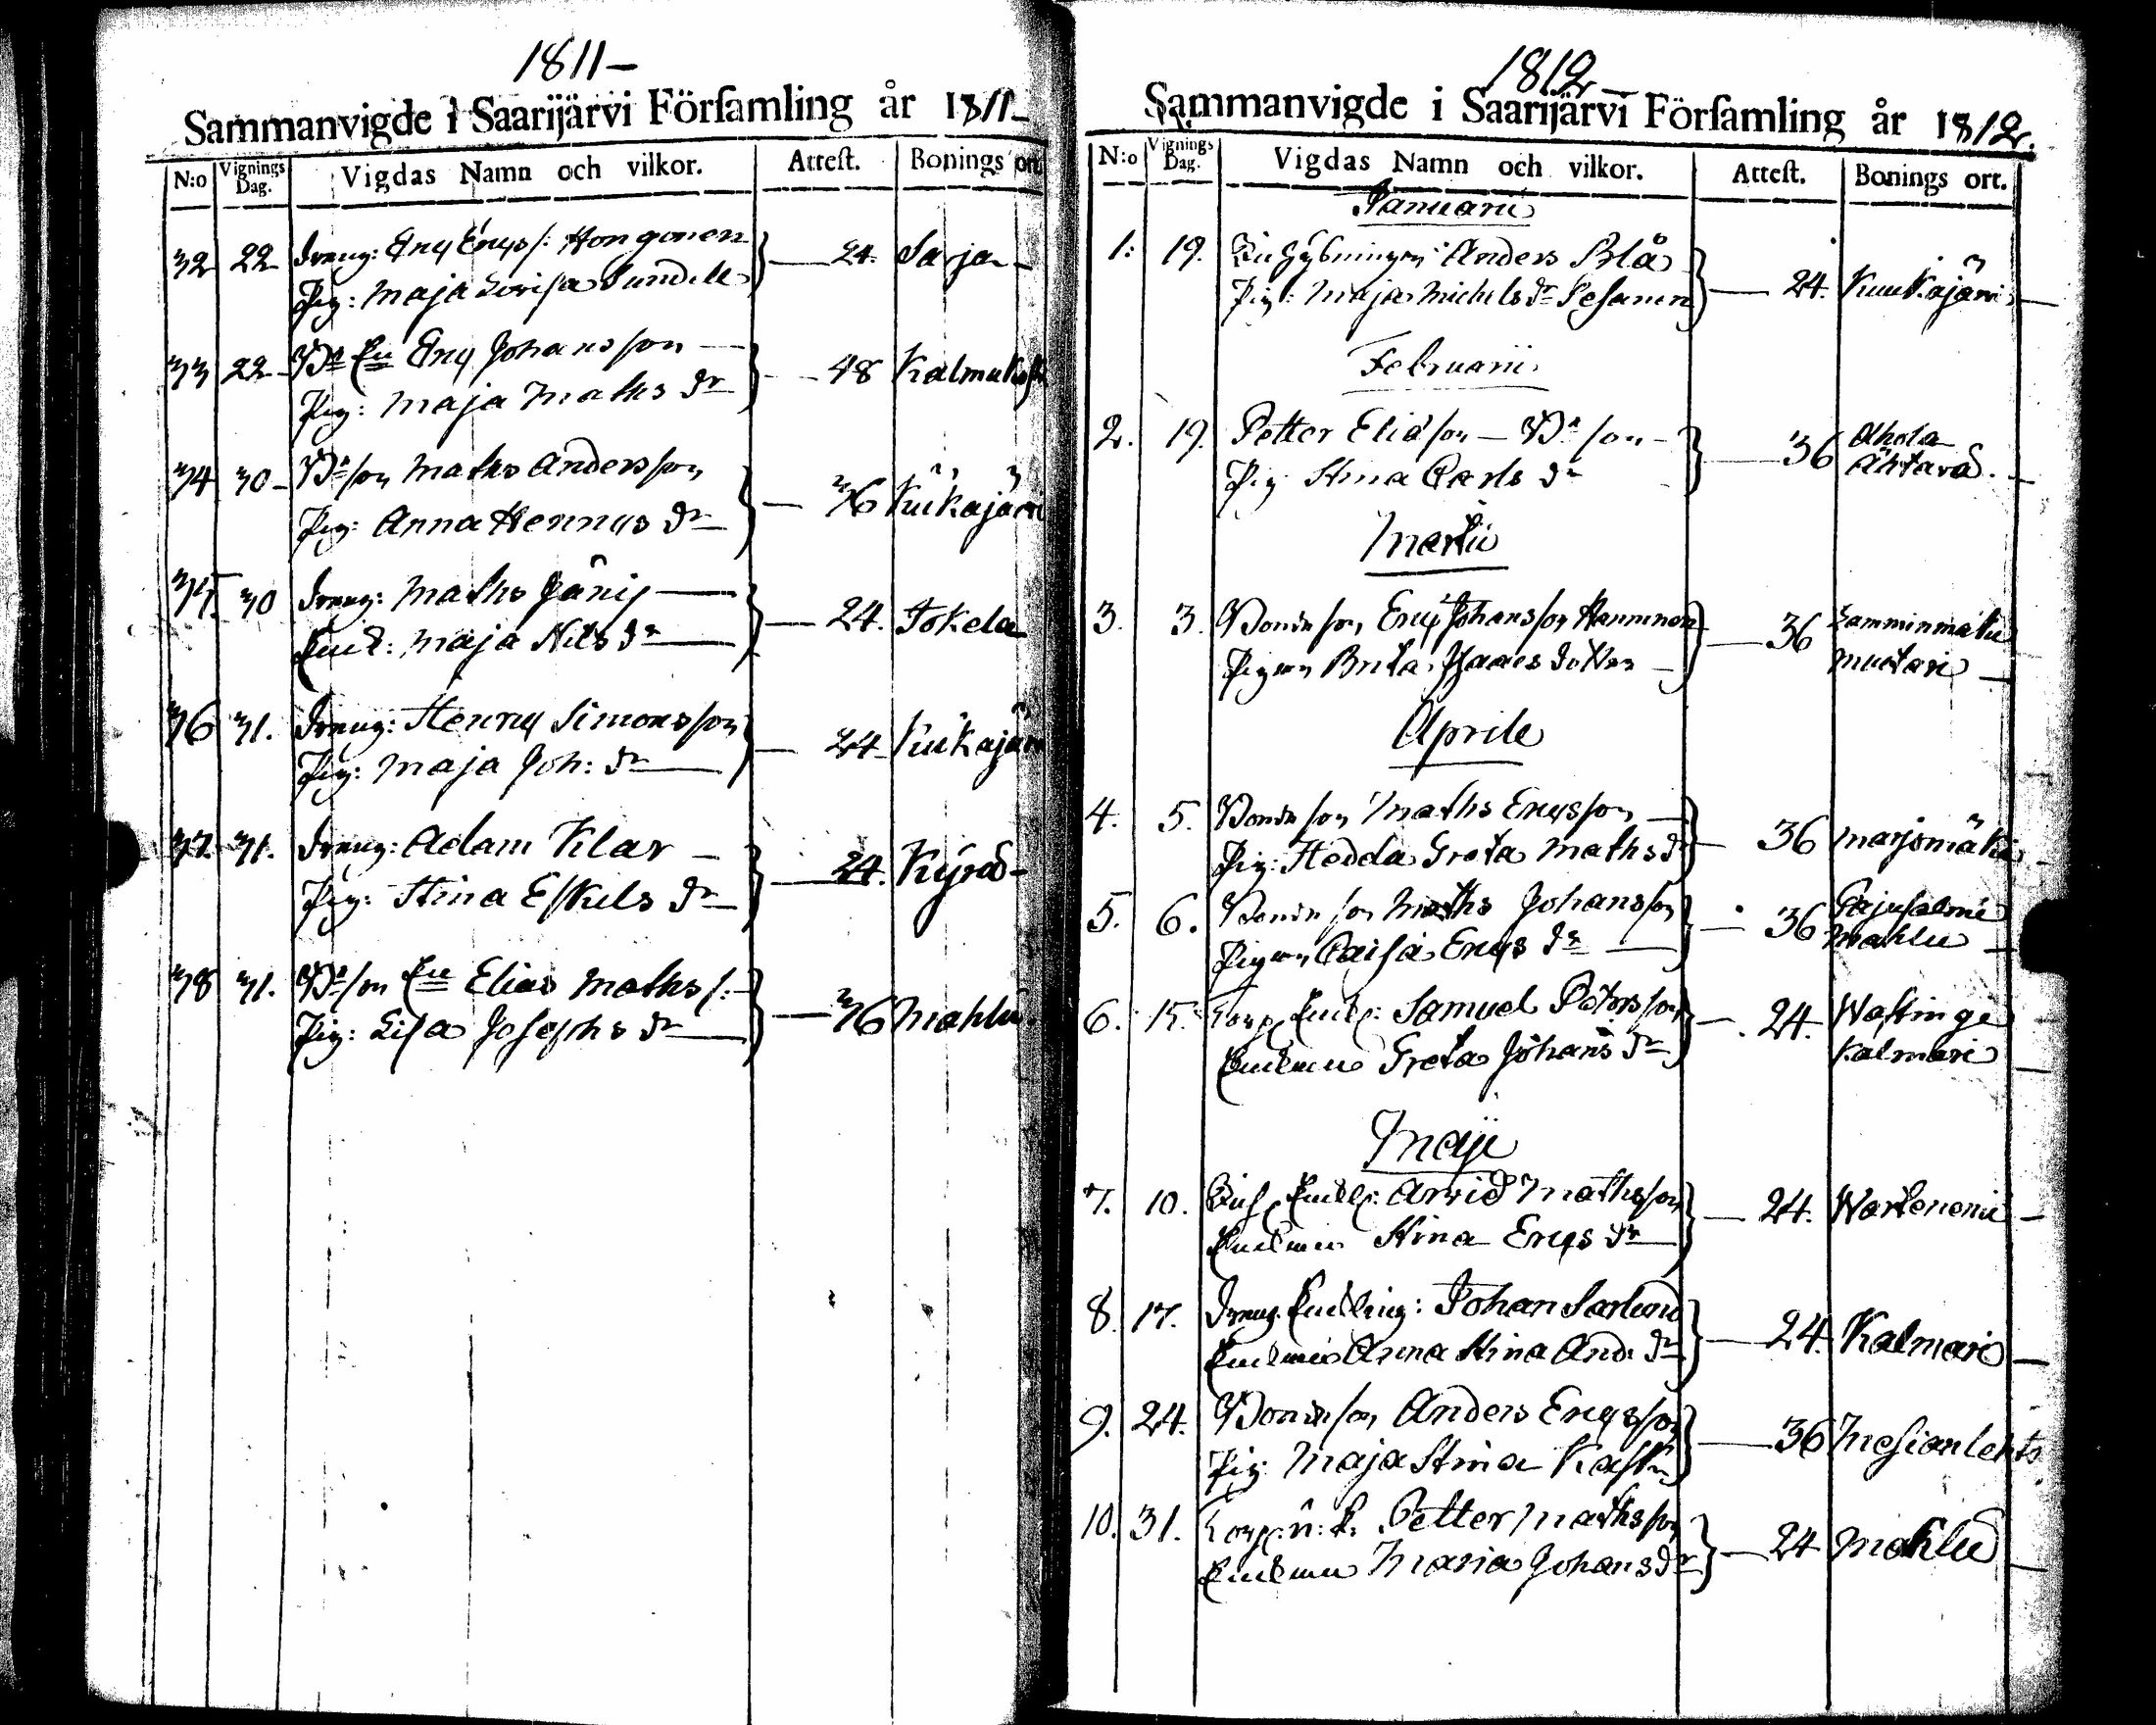 1811–
Sammanvigde i Saarijärvi Förſamling år 1811–
N:o Vignings Dag. Vigdas Namn och vilkor. Atteſt. Bonings ort.
32 22 Dreng: Eric Erics s: Hongonen
Pig: Maja Lovisa Sundell 24. Sarja –
33 22 Bd Enl Eric Johansson
Pig: Maja Maths dr 48 Kalmu
34 30 Bd son Maths Andersson
Pig: Anna Henrics dr 36 Kukajärvi
35. 30 Dreng: Maths
Enk: Maja Nils dr 24. Tokela
36 31. Dreng: Henric Simonsson
Pig: Maja Joh: dr 24 Kukajärvi
37. 31. Dreng: Adam Klar –
Pig: Stina Eskils dr 24. Kyrö –
38 31. Bd son Enl Elias Maths s:
Pig: Lisa Josephs dr 36 Mahlu
1812 –
Sammanvigde i Saarijärvi Förſamling år 1812.
N:o Vignings Dag. Vigdas Namn och vilkor. Atteſt. Bonings ort.
Januarii
1: 19. Anders Blå
Pig: Maja Michels dr Pesonen 24. Kuukajärvi
Februarii
2. 19. Petter Eliasson – Bd son –
Pig Stina Carls dr 36 Ahola
Ähtärä.
Martii
3. 3. Bonde son Eric Johansson Hanninen
Pigan Brita Isaacs dotter – 36 Lamminmäki
Muttari
Aprile
4. 5. Bonde son Maths Ericsson
Pig: Hedda Greta Maths dr 36 Marjomäki
5. 6. Bonde son Maths Johansson
Pigan Caisa Erics dr 36 Pajusalmi
Mahlu
6. 15. Torp Enkl: Samuel Petersson
Enkan Greta Johans dr 24. Wastinge
Kalmari
Maji
7. 10. Enkl: Arvid Mathsson
Enkan Stina Erics dr 24. Wartenemi
8. 17. Dreng Enkling: Johan Sarlund
Enkan Anna Stina And. dr 24. Kalmari
9. 24. Bonde son Anders Ericsson
Pig: Maja Stina 36 Mesianlehto
10. 31. Torp: Petter Mathsson
Enkan Maria Johans dr 24 Mahlu